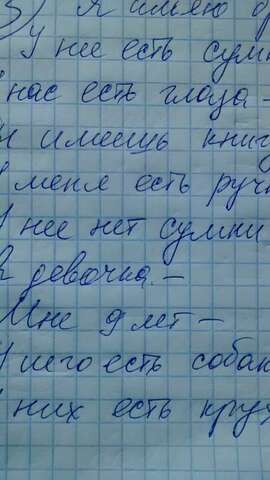 3) Я имею
У нее есть сумк
нас есть глаза -
имеешь книгу
меня есть руч
У нее нет сумки
девочка -
Мне 9 лет -
него есть собак
них есть круж